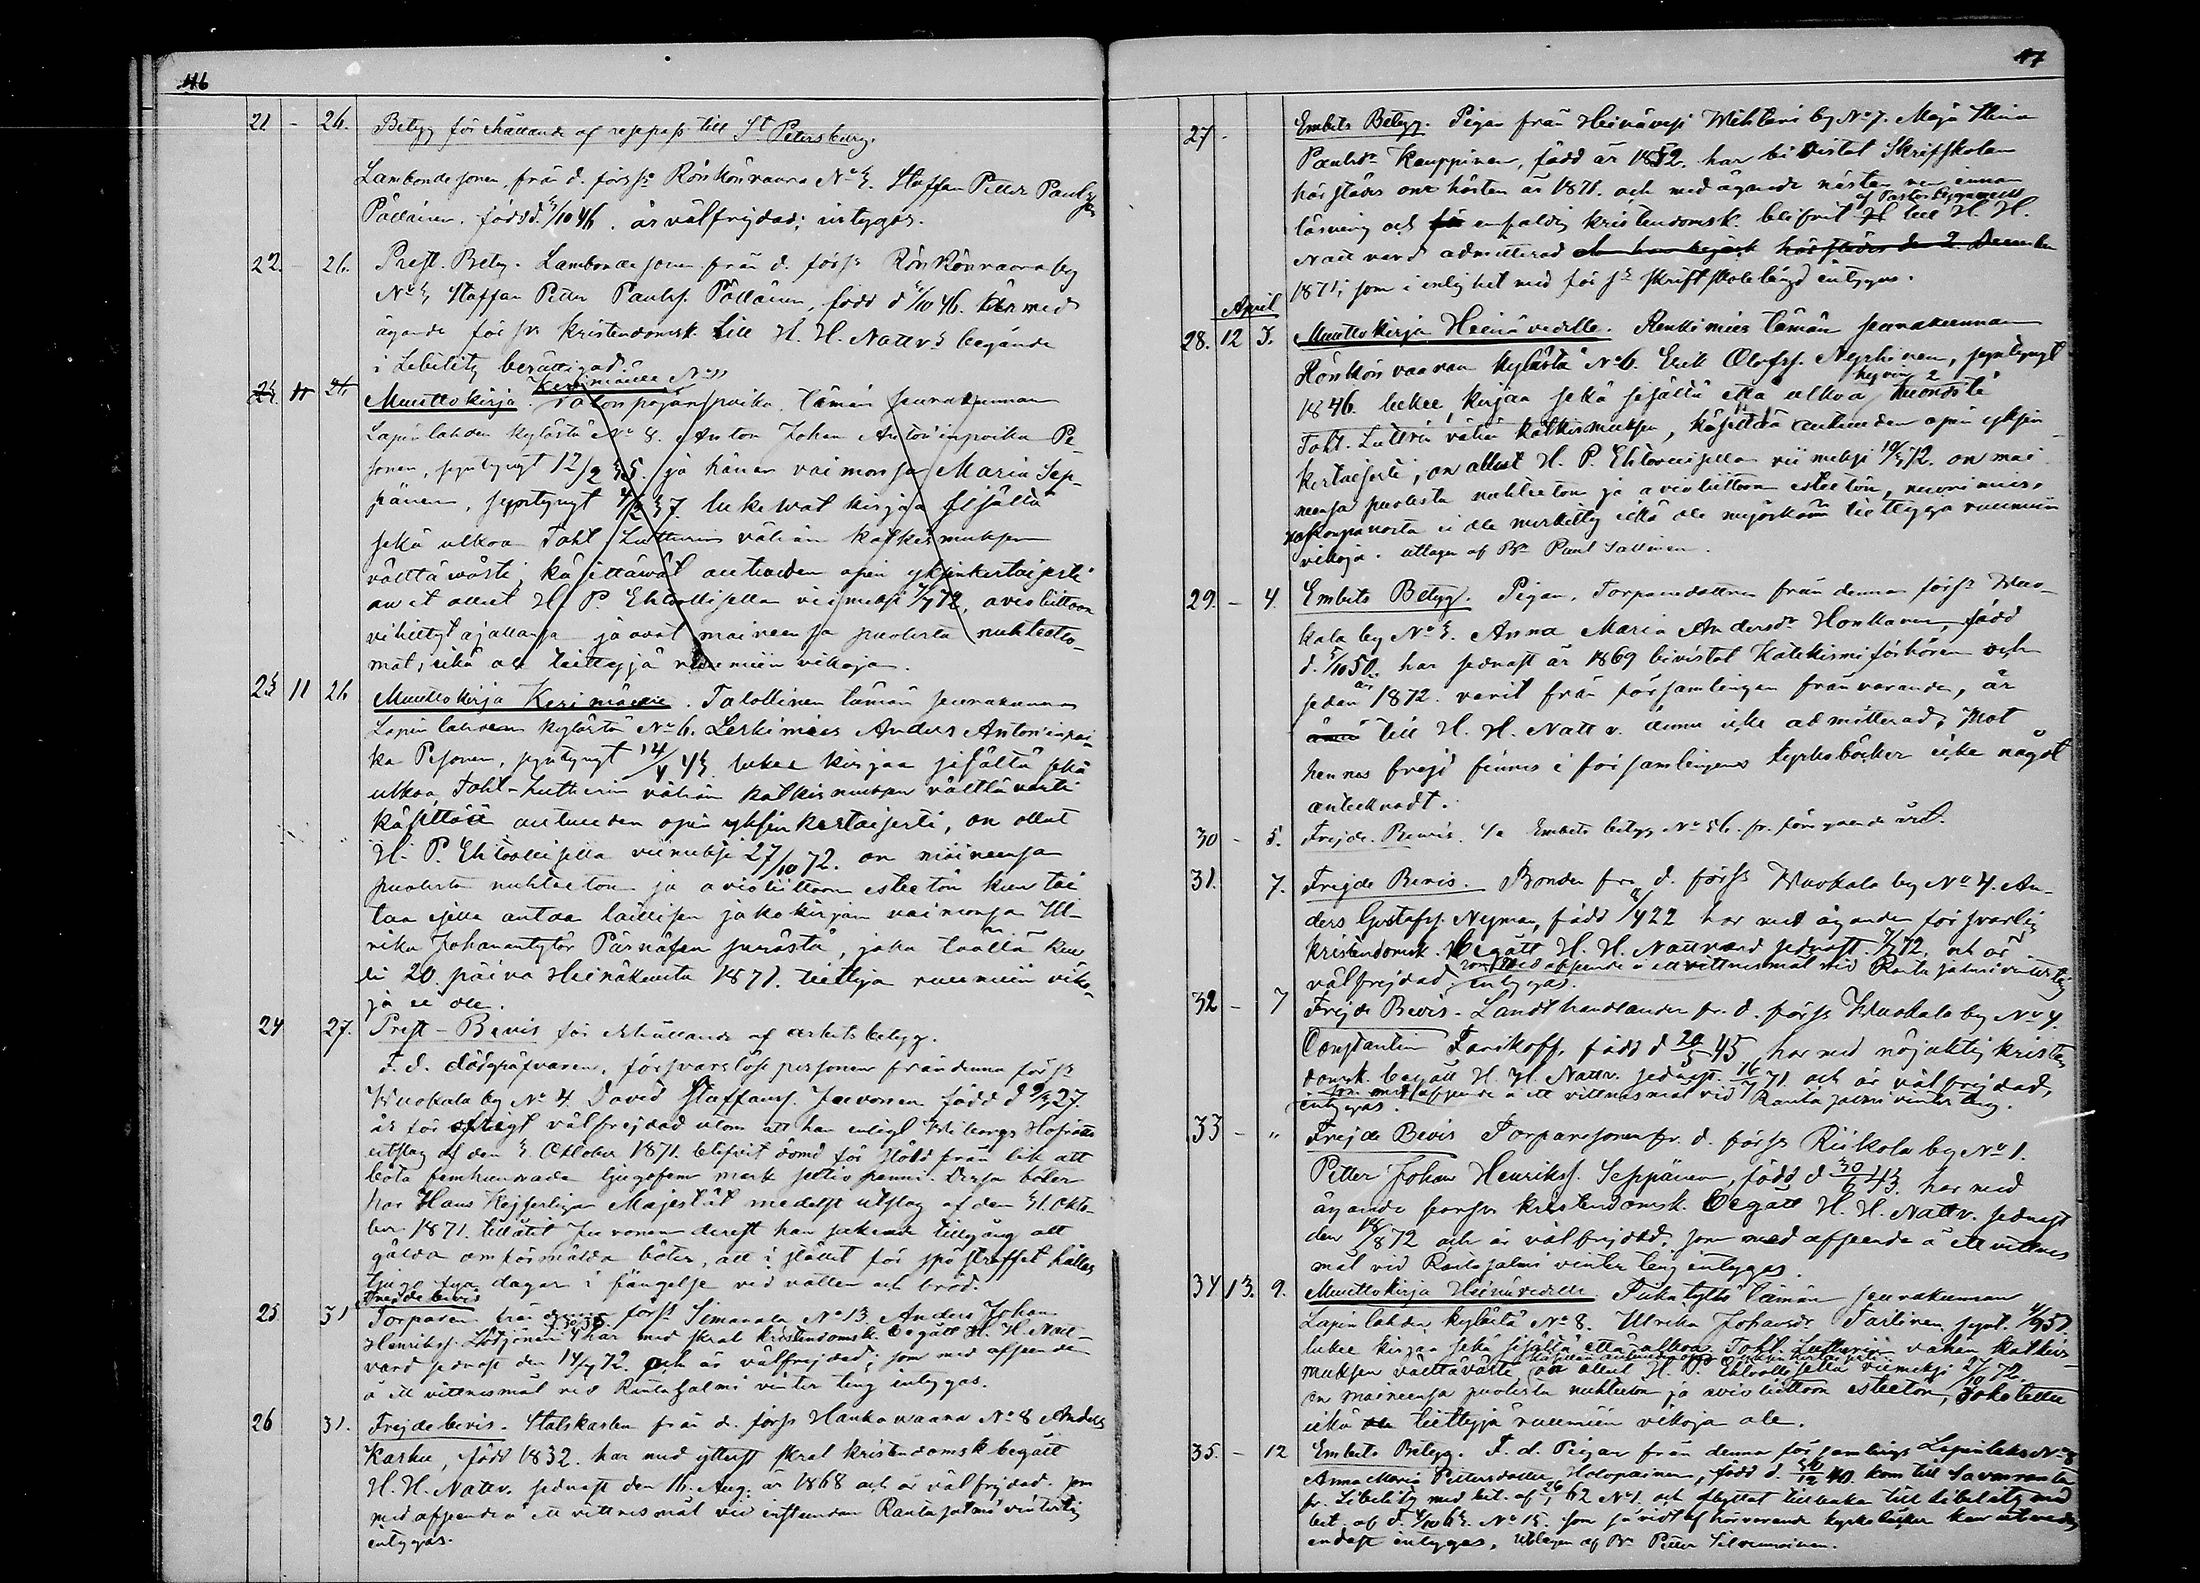 46
21 - 26. Betyg för erhållande af respass till St Petersburg.
Lambondesonen, från d. förs:s Rönkönvaara No 3. Staffan Petter Paulss.
Pöllänen, född d. 3/10 46. är välfrejdad; intygas.
22. - 26. Prest. Betyg. Lambondesonen från d. förs:s Rönkönvaara by
No 3, Staffan Petter Paulss. Pöllänen, född d 3/10 46. är med
ägande förs:r kristendomsk. till H. H. Nattv:s begående
i Libelitz berättigad.
23. 11 26 Muuttokirja Kerimäelle No 11
Talonpojan poika tämän seurakunnan
Lapinlahden kylästä No 8. Anton Johan Antoninpoika Pe-
sonen, syntynyt 12/2 35 ja hänen vaimonsa Maria Sep-
pänen, syntynyt 4/2 37. lukewat kirjaa sisältä
sekä ulkoa Toht Lutherin vähän katkismuksen
välttäwästi, käsittäwät autuuden opin yksinkertaisesti
owat ollut H. P. Ehtoollisella viimeksi 7/7 72, avioliittoon
vihityt ajallansa ja ovat maineensa puolesta nuhteetto-
mat, eikä ole tiettyjä ruumiin vikoja.
23 11 26 Muuttokirja Kerimäelle. Talollinen tämän seurakunnan
Lapinlahden kylästä No 6. Leskimies Anders Antoninpoi-
ka Pesonen, syntynyt 14/4 43 lukee kirjaa sisältä sekä
ulkoa Toht. Lutherin vähän katkismuksen välttävästi
käsittää autuuden opin yksinkertaisesti, on ollut
H. P. Ehtoollisella viimeksi 27/10 72. on maineensa
puolesta nuhteeton ja avioliittoon esteetön kun tai-
taa esille antaa laillisen jakokirjan vaimonsa Ul-
rika Johanantytär Pärnäsen perästä, joka täällä kuo-
li 20. päivä Heinäkuuta 1871. tiettyjä ruumiin viko-
ja ei ole.
24 27. Prest-Bevis för erhållande af arbets betyg.
F. d. dödgräfvaren, försvarslöse personen från denna förs:s
Wuokala by No 4. David Staffanss. Juvonen född d 9/3 27.
är för öfrigt välfrejdad utom att han enligt Wiborgs Hofrätts
utslag af den 3. Oktober 1871. blifvit dömd för stöld från lik att
böta femhundrade tjugofem mark sextio penni. Dessa böter
har Hans Kejserliga Majestät medelst utslag af den 31. Okto-
ber 1871. tillåtit Juvonen derest han saknade tillgång att
gälda omförmälda böter, att i stället för spöstraffet hållas
tjugo fyra dagar i fängelse vid vatten och bröd.
25. 31 Frejdebevis
Torparen från denna förs:s Simanala No 13 Anders Johan
Henrikss. Lötjönen har med skral kristendomsk. begått H. H. Natt-
vard sednast den 14/7 72. och är välfrejdad; som med afseende
å ett vittnesmål vid Rantasalmi vinter ting intygas.
26 31. Frejdebevis. Statskarlen från d. förs:s Hankavaara No 8 Anders
Karhu, född 1832. har med ytterst skral kristendomsk begått
H. H. Nattv. sednast den 16. Aug. år 1868 och är välfrejdad. som
med afseende å ett vittnesmål vid instundan Rantasalmi vinterting
intygas.
47
27 - Embets Betyg. Pigan från Heinävesi Wihtari by No 7. Maja Stina
Paulsdr Kauppinen, född år 1852. har bivistat Skriftskolan
härstädes om hösten år 1871. och med ägande nästan innan
läsning och enfaldig kristendomsk. blifvit af Pastor till H. H.
Nattvard admitterad och har begått härstädes den 2 December
1871; som i enlighet med förs:s skriftskolelängd intygas.
April
28. 12 3. Muuttokirja Heinävedelle. Renkimies tämän seurakunnan
Rönkönvaaran kylästä No 6. Erik Olofss. Nyyhinen, syntynyt
1846. lukee kirjaa sekä sisältä että ulkoa
Toht. Lutherin vähän katkismuksen, käsittää autuuden opin yksin-
kertaisesti, on ollut H. P. Ehtoollisella viimeksi 10/3 72. on mai-
neensa puolesta nuhteeton ja avioliittoon esteetön,
ei ole merkitty eikä ole tiettyjä ruumiin
vikoja. uttagen af Bn Paul Sallinen.
29. - 4. Embets Betyg. Pigan, Torparedottren från denna förs:s Wuo-
kala by No 3. Anna Maria Andersdr Honkanen, född
d. 5/10 50. har sednast år 1869 bivistat Katekismiförhören och
sedan år 1872. varit från församlingen frånvarande, är
till H. H. Nattv. ännu icke admitterad; Mot
hennes frejd finnes i församlingens kyrkoböcker icke något
antecknadt.
30 - 5. Frejde-Bevis. Embets betyg No 56. fr. föregående året.
31. 7. Frejde Bevis. Bonden fr. d. förs:s Wuokala by No 4. An-
ders Gustafss. Nyman, född 1/4 22 har med ägande försvarlig
kristendomsk. begått H. H. Nattvard sednast 7/7 72. och är
välfrejdad, som med afseende å ett vittnesmål vid Rantasalmi vinterting
intygas.
32 - 7 Frejde Bevis. Landthandlanden fr. d. förs:s Wuokala by No 4.
Constantin Farikoff, född d 20/5 45 har med nöjaktig kristen-
domsk. begått H. H. Nattv. sednast. 16/7 71 och är välfrejdad,
som med afseende å ett vittnesmål vid Rantasalmi vinterting.
intygas.
33 - " Frejde Bevis Torparesonen fr. d. förs:s Riikola by No 1.
Petter Johan Henrikss. Seppänen, född d 30/6 43. har med
ägande försv. kristendomsk. begått H. H. Nattv. sednast
den 18/8 72 och är välfrejdad, som med afseende å ett vittnes
mål vid Rantasalmi vinter ting intygas.
34 13. 9. Muuttokirja Heinävedelle. Piikatyttö tämän seurakunnan
Lapinlahden kylästä No 8. Ulrika Johansdr Tarlinen, synt. 4/9 51.
lukee kirjaa sekä sisältä että ulkoa Toht. Lutherin vähän katkis-
muksen välttävästi, käsittää autuuden opin yksinkertaisesti on ollut H. P. Ehtoollisella viimeksi 27/10 72.
on maineensa puolesta nuhteeton ja avioliittoon esteetön,
eikä tiettyjä ruumiin vikoja ole.
35. - 12 Embets Betyg. F. d. Pigan från denna församlings Lapinlaks No 8
Anna Maria Pettersdotter Holopainen, född d. 12 40 kom till Savonranta
fr. Libelitz med bet. af 62 No 1. och flyttat tillbaka till Libelitz med
bet. af d. 4/10 63. No 15. som såvidt af härvarande kyrkoböcker kan utredas
endast intygas, Uttagen af Bn Petter Silvennoinen.